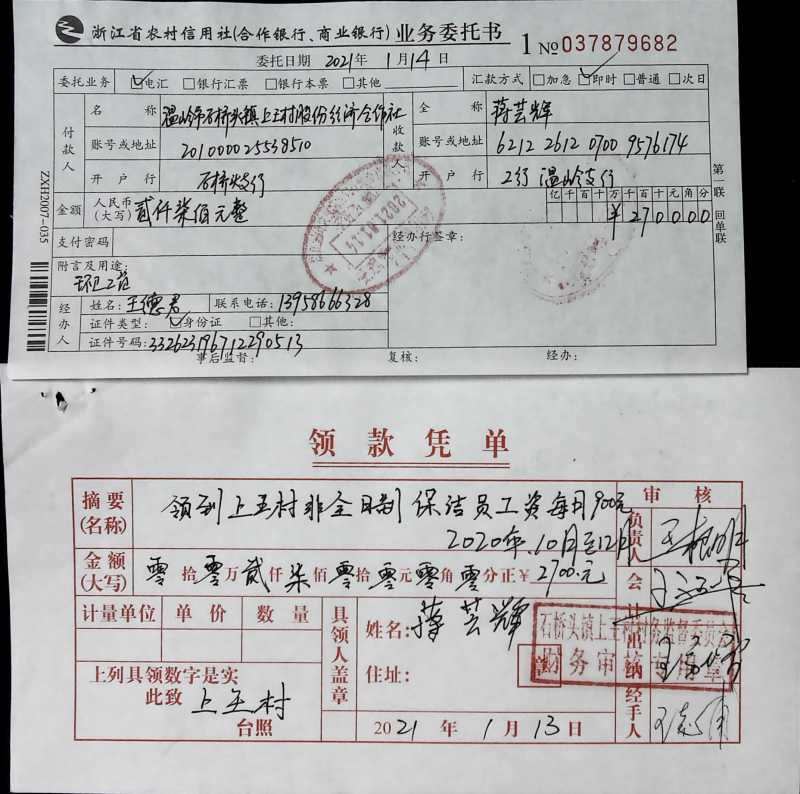 浙江省农村信用社(合作银行、商业银行)业务委托书 1 No 037879682
委托日期 2021年 1月14日
委托业务 ☑电汇 □银行汇票 □银行本票 □其他 汇款方式 □加急 ☑即时 □普通 □次日
付款人 名称 温岭市石桥头镇上王村股份经济合作社 收款人 全称 蒋芸辉
账号或地址 201000025538510 账号或地址 6212 2612 0700 9576174
开户行 石桥头支行 开户行 工行 温岭支行
金额 人民币(大写) 贰仟柒佰元整 亿千百十万千百十元角分 ¥270000
支付密码 经办行签章:
附言及用途:
环卫工资
经办人 姓名: 王德君 联系电话: 13958666328
证件类型: ☑身份证 □其他:
证件号码: 332623196712290513
事后监督: 复核: 经办:
第一联 回单联
ZXH2007-035
2021.01.14
领款凭单
摘要(名称) 领到上王村非全日制保洁员工资每月900元
2020年10月至12月
审核
负责人
会计
出纳
经手人
金额(大写) 零拾零万贰仟柒佰零拾零元零角零分正¥2700.元
计量单位 单价 数量
具领人盖章
姓名: 蒋芸辉
住址:
上列具领数字是实
此致 上王村
台照
2021年 1月 13日
石桥头镇上王村村务监督委员会
财务审核专用章